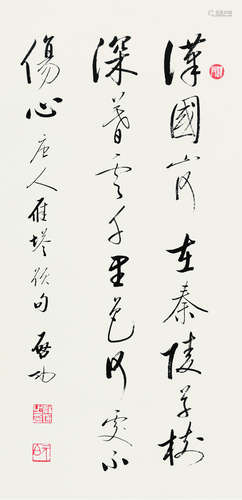 漢國山河在秦陵草樹
深暮雲千里色何處不
傷心 唐人雁塔題句 啟功